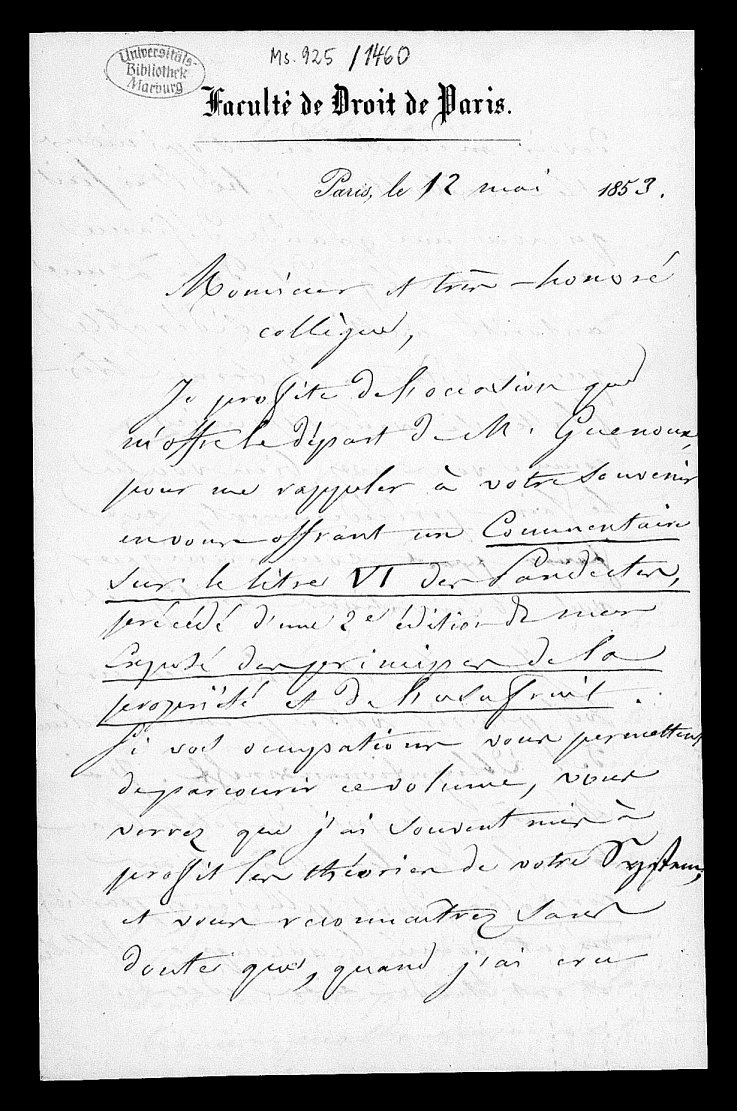 Ms. 925 / 1460
Universitäts-
Bibliothek
Marburg
Faculté de Droit de Paris.
Paris, le 12 mai 1853.
Monsieur et très-honoré
collègue,
Je profite de l'occasion que
m'offre le départ de M. Guenoux,
pour me rappeler à votre souvenir
en vous offrant un Commentaire
sur le titre VI des Pandectes,
précédé d'une 2e édition de mes
Exposé des principes de la
propriété et de l'usufruit.
Si vos occupations vous permettent
de parcourir ce volume, vous
verrez que j'ai souvent mis à
profit les théories de votre System,
et vous reconnaîtrez sans
doute que, quand j'ai cru